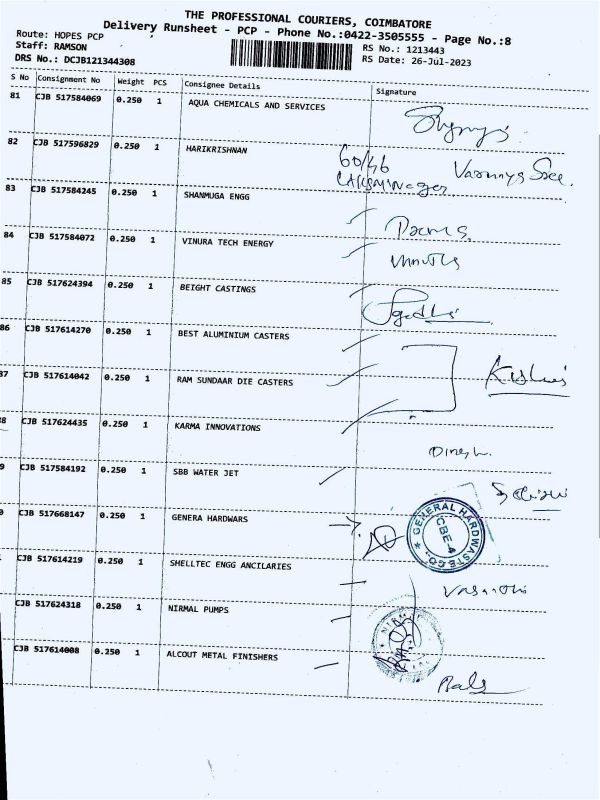 THE PROFESSIONAL COURIERS, COIMBATORE
Delivery Runsheet - PCP - Phone No.:0422-3505555 - Page No.:8
Route: HOPES PCP
Staff: RAMSON
DRS No.: DCJB121344308
RS No.: 1213443
RS Date: 26-Jul-2023
S No Consignment No Weight PCS Consignee Details Signature
81 CJB 517584069 0.250 1 AQUA CHEMICALS AND SERVICES
82 CJB 517596829 0.250 1 HARIKRISHNAN 60/46
83 CJB 517584245 0.250 1 SHANMUGA ENGG
84 CJB 517584072 0.250 1 VINURA TECH ENERGY
85 CJB 517624394 0.250 1 BEIGHT CASTINGS
86 CJB 517614270 0.250 1 BEST ALUMINIUM CASTERS
87 CJB 517614042 0.250 1 RAM SUNDAAR DIE CASTERS
8 CJB 517624435 0.250 1 KARMA INNOVATIONS
Dinesh.
9 CJB 517584192 0.250 1 SBB WATER JET
0 CJB 517668147 0.250 1 GENERA HARDWARS
GENERAL HARDWASTE CO.
CBE-4
CJB 517614219 0.250 1 SHELLTEC ENGG ANCILARIES
Vasanthi
CJB 517624318 0.250 1 NIRMAL PUMPS
CJB 517614008 0.250 1 ALCOUT METAL FINISHERS